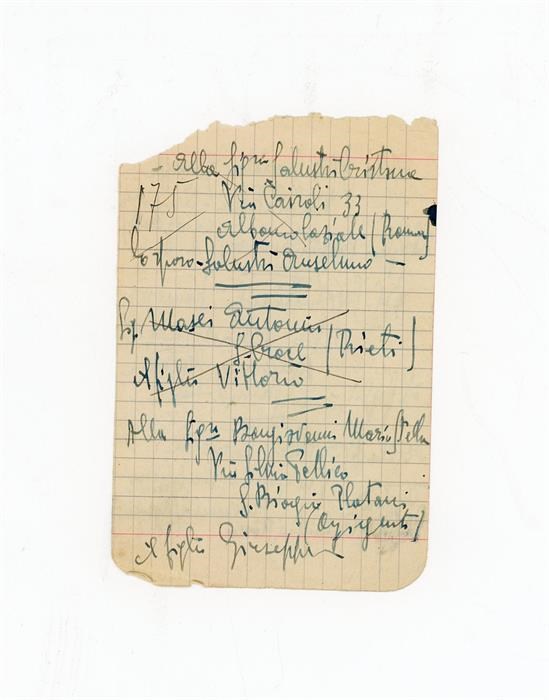 - Alla Sig.ra Salustri Cristina
175 Via Cairoli 33
Albano Laziale (Roma)
lo sposo - Salustri Anselmo -
Sig. Masci Antonio
S. Croce (Rieti)
Il figlio Vittorio
Alla Sig.ra Bongiovanni Maria Stella
Via Silvio Pellico
S. Biagio Platani
(Agrigento)
Il figlio Giuseppe